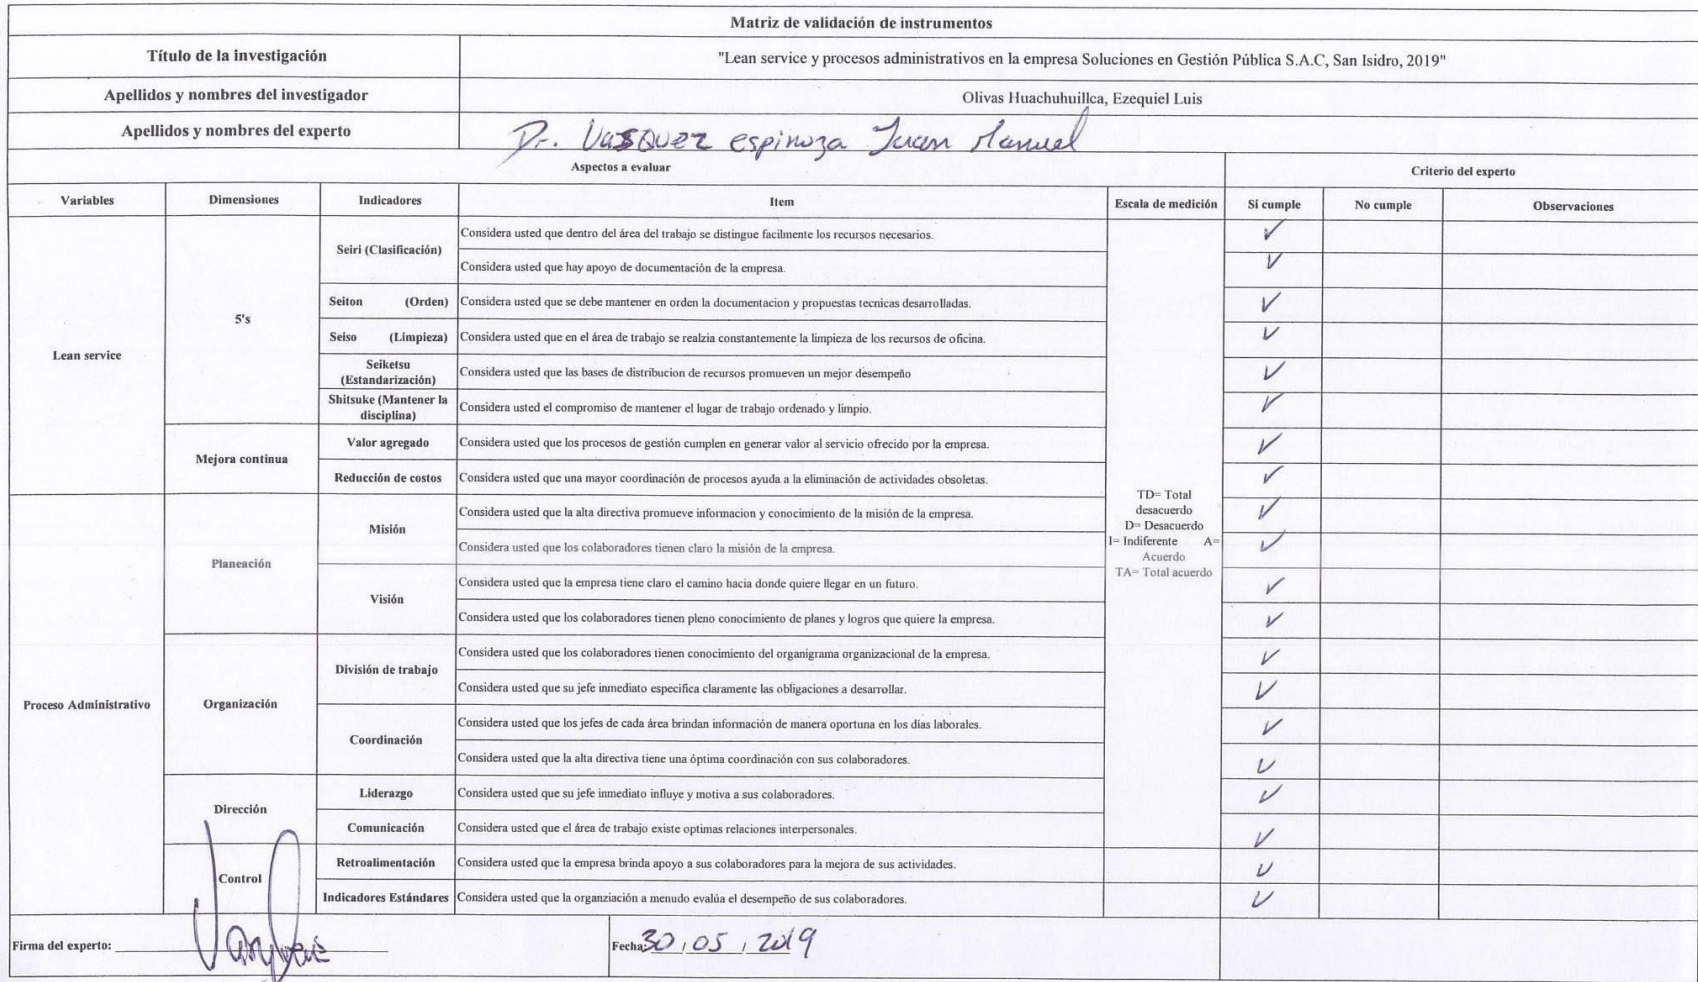 Matriz de validación de instrumentos
Título de la investigación
"Lean service y procesos administrativos en la empresa Soluciones en Gestión Pública S.A.C, San Isidro, 2019"
Apellidos y nombres del investigador
Olivas Huachuhuillca, Ezequiel Luis
Apellidos y nombres del experto
Dr. Vasquez espinoza Juan Manuel
Aspectos a evaluar
Criterio del experto
Variables
Dimensiones
Indicadores
Item
Escala de medición
Si cumple
No cumple
Observaciones
Lean service
5's
Seiri (Clasificación)
Considera usted que dentro del área del trabajo se distingue facilmente los recursos necesarios.
✓
Considera usted que hay apoyo de documentación de la empresa.
✓
Seiton (Orden)
Considera usted que se debe mantener en orden la documentacion y propuestas tecnicas desarrolladas.
✓
Seiso (Limpieza)
Considera usted que en el área de trabajo se realzia constantemente la limpieza de los recursos de oficina.
✓
Seiketsu
(Estandarización)
Considera usted que las bases de distribucion de recursos promueven un mejor desempeño
✓
Shitsuke (Mantener la
disciplina)
Considera usted el compromiso de mantener el lugar de trabajo ordenado y limpio.
✓
Mejora continua
Valor agregado
Considera usted que los procesos de gestión cumplen en generar valor al servicio ofrecido por la empresa.
✓
Reducción de costos
Considera usted que una mayor coordinación de procesos ayuda a la eliminación de actividades obsoletas.
✓
TD= Total
desacuerdo
D= Desacuerdo
I= Indiferente A=
Acuerdo
TA= Total acuerdo
Proceso Administrativo
Planeación
Misión
Considera usted que la alta directiva promueve informacion y conocimiento de la misión de la empresa.
✓
Considera usted que los colaboradores tienen claro la misión de la empresa.
✓
Visión
Considera usted que la empresa tiene claro el camino hacia donde quiere llegar en un futuro.
✓
Considera usted que los colaboradores tienen pleno conocimiento de planes y logros que quiere la empresa.
✓
Organización
División de trabajo
Considera usted que los colaboradores tienen conocimiento del organigrama organizacional de la empresa.
✓
Considera usted que su jefe inmediato especifica claramente las obligaciones a desarrollar.
✓
Coordinación
Considera usted que los jefes de cada área brindan información de manera oportuna en los días laborales.
✓
Considera usted que la alta directiva tiene una óptima coordinación con sus colaboradores.
✓
Dirección
Liderazgo
Considera usted que su jefe inmediato influye y motiva a sus colaboradores.
✓
Comunicación
Considera usted que el área de trabajo existe optimas relaciones interpersonales.
✓
Control
Retroalimentación
Considera usted que la empresa brinda apoyo a sus colaboradores para la mejora de sus actividades.
✓
Indicadores Estándares
Considera usted que la organziación a menudo evalúa el desempeño de sus colaboradores.
✓
Firma del experto:
Fecha: 30/05/2019